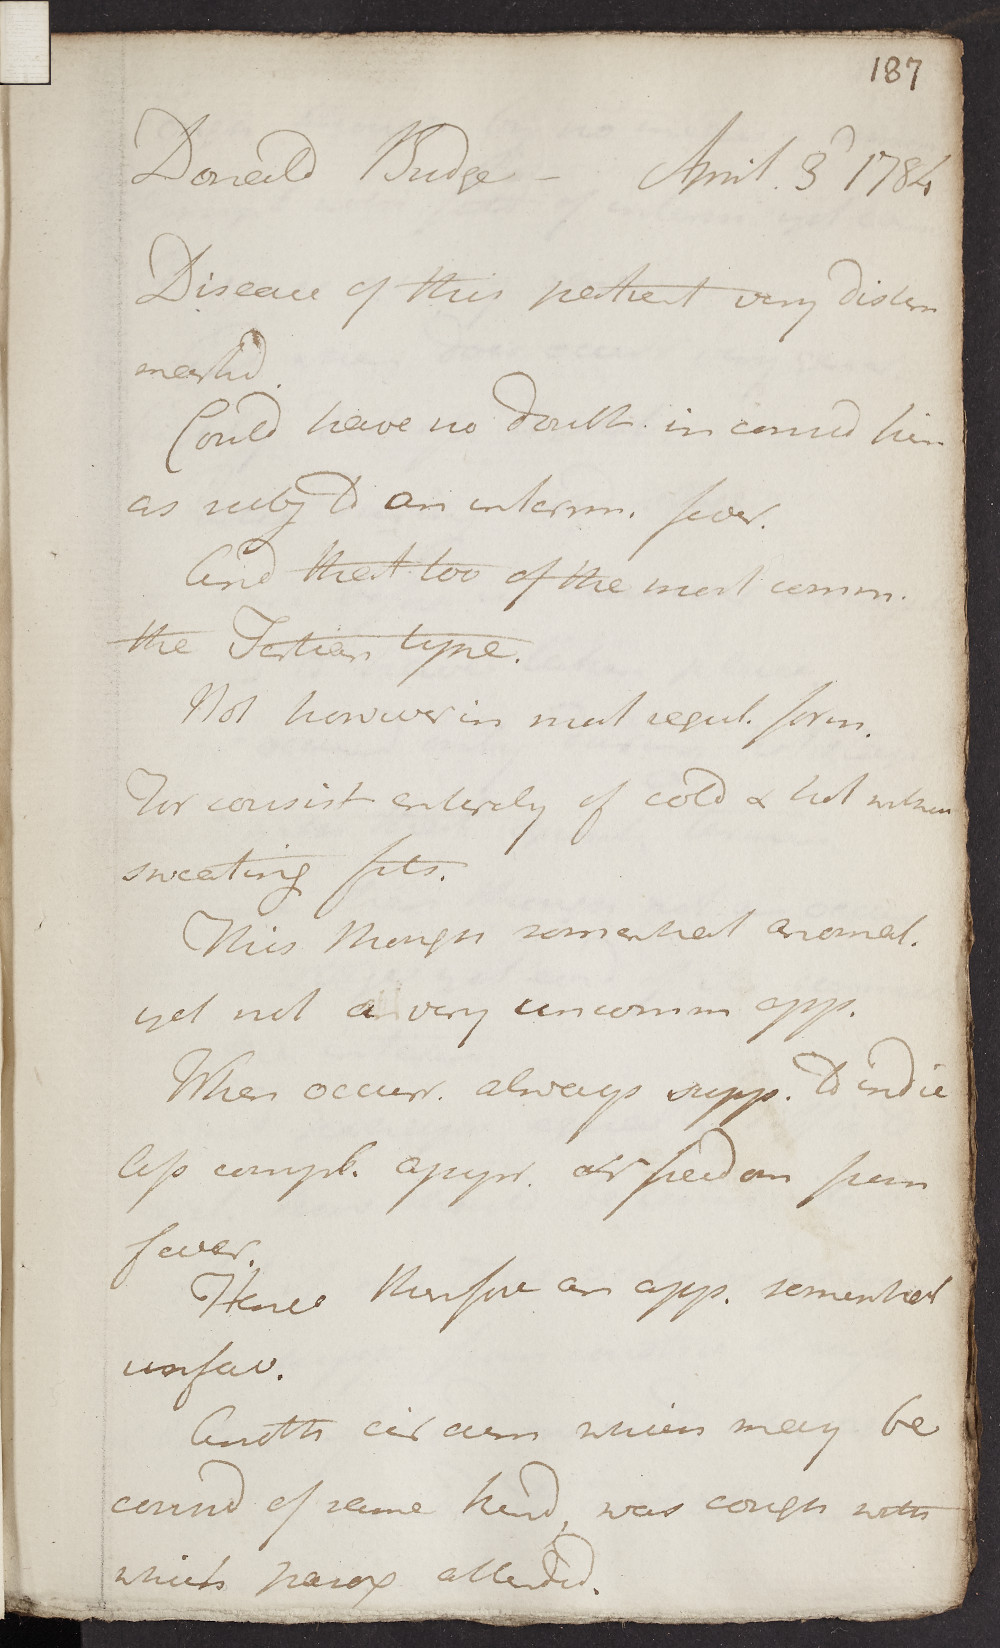 187
Donald Budge – April 3d 1784
Disease of this patient very distin
markd.
Could have no doubt in consid him
as subj to an interm. fever.
And that too of the most comm.
the Tertian type.
Not however in most regul. form.
For consist entirely of cold & hot without
sweating fits.
This though somewhat anomal.
yet not a very uncomm app.
When occurr. always supp. to indic
less compl. apyr. or freedom from
fever.
Hence therefore an app. somewhat
unfav.
Anoth circum which may be
consid of same kind, was cough with
which parox attended.